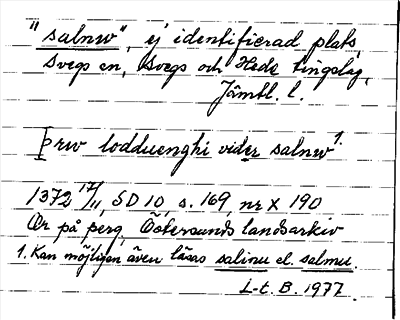 "salnw", ej identifierad plats,
Svegs en, Svegs och Hede tingslag,
Jämtl. l.
Þrw lodduenghi vider salnw¹.
1372 17/11, SD 10, s. 169, nr X 190
Or på perg, Östersunds landsarkiv
1. Kan möjligen även läsas salinu el. salmu.
L-t. B. 1977